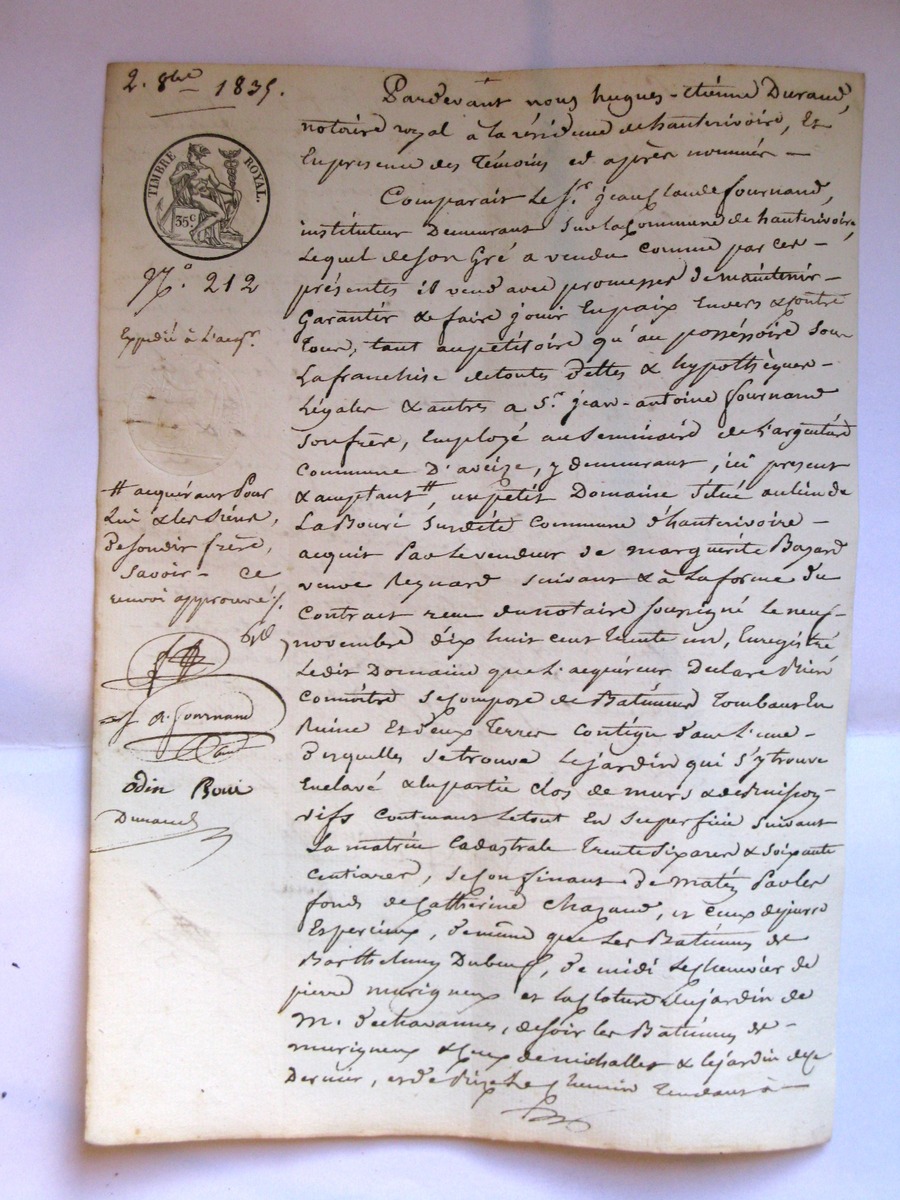 2. 8bre 1835.
TIMBRE ROYAL.
35c
No. 212
Expédié à l'acqr.
Pardevant nous hugues-étienne Durand,
notaire royal à la résidence de hauterivoire, Et
En presence des Témoins cd après nommés —
Comparait Le Sr. jean Claude fournand,
instituteur Demeurant Sur la Commune de hauterivoire,
Lequel de son Gré a vendu Comme par ces —
présentes il vend avec promesses de maintenir —
Garantir & faire jouir En paix Envers & contre
Tous, tant au petitoire qu'au posséssoire Sous
La franchise de toutes Dettes & hypothèques
Légales & autres a Sr. jean-antoine fournand
Son frère, Employé au Seminaire de L'argentière
Commune D'aveize, y demeurant, ici present
& acceptant #, un petit Domaine situé au lieu de
La Bourí Surdite Commune d'hauterivoire —
acquit Par le vendeur de marguérite Bazard
veuve Reynard suivant & à La forme du
Contract recu du notaire soussigné le neuf
novembre dix huit cent trente un, Enregistré
Ledit Domaine que L'acquéreur Déclare Bien
Connoître Se Compose de Batimens Tombant En
Ruine Et deux Terres Contigues dans L'une
desquelles se trouve Le jardin qui s'y trouve
Enclavé & la partie Clos de murs & de Buissons
vifs Contenant Le tout En superficie suivant
La matrice Cadastrale Trente six ares & soixante
Centiares, se Confinant De matin Par les
fonds de Catherine Chazaud, et Ceux
de même que Les Batimens de
Barthelemy Dubeuf, de midi Le Chenevier de
pierre murigneux et La Cloture du jardin de
M. Dechavannes, de soir les Batimens de —
murigneux & Ceux de michallet & le jardin de Ce
Dernier, et de Bize Le Chemin Tendant à —
# acquérant Pour
Lui & les siens,
de sondit frère,
Savoir — Ce
renvoi approuvé /.
J A. fournand
Odin Bouri
Durand